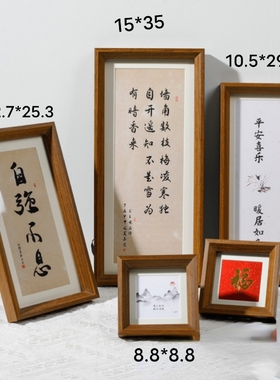 15*35
10.5*29
2.7*25.3
墙角数枝梅凌寒独
自开遥知不是雪为
有暗香来
平安喜乐
暖居如
自强不息
福
8.8*8.8